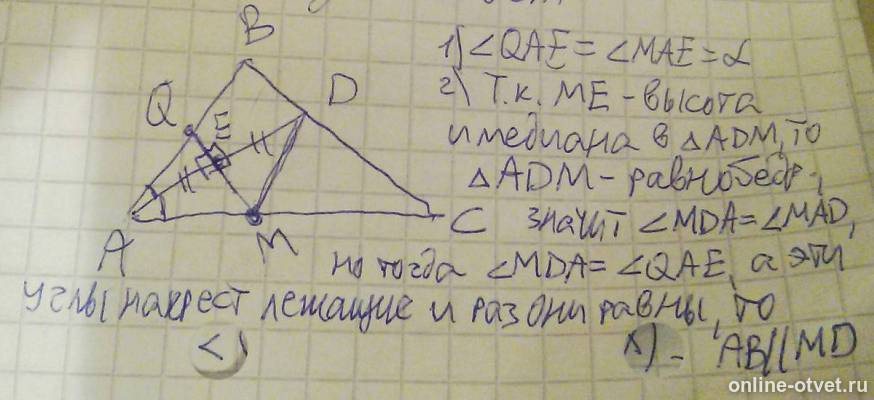 1) ∠QAE = ∠MAE = α
2) Т.к. ME - высота
и медиана в △ADM, то
△ADM - равнобедр.,
значит ∠MDA = ∠MAD,
но тогда ∠MDA = ∠QAE, а эти
углы накрест лежащие и раз они равны, то
AB || MD
B
Q
E
D
A
M
C
online-otvet.ru